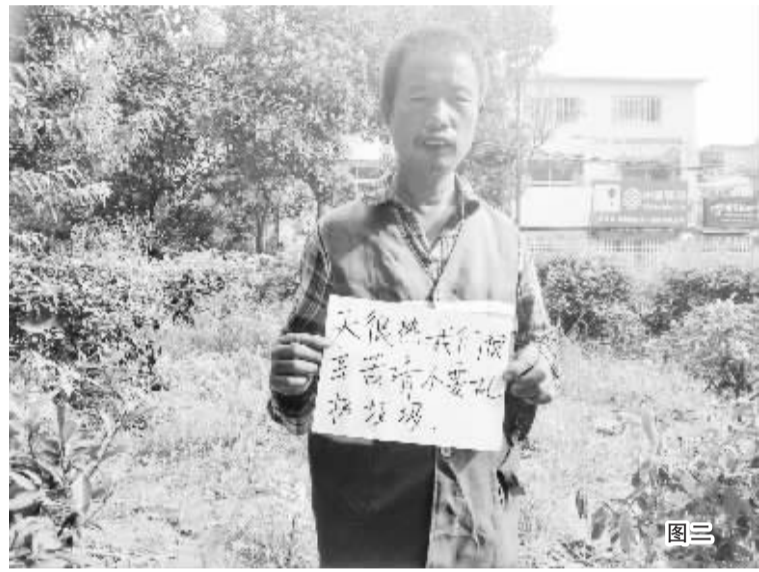 天很热我们很
辛苦请不要乱
扔垃圾.
图二